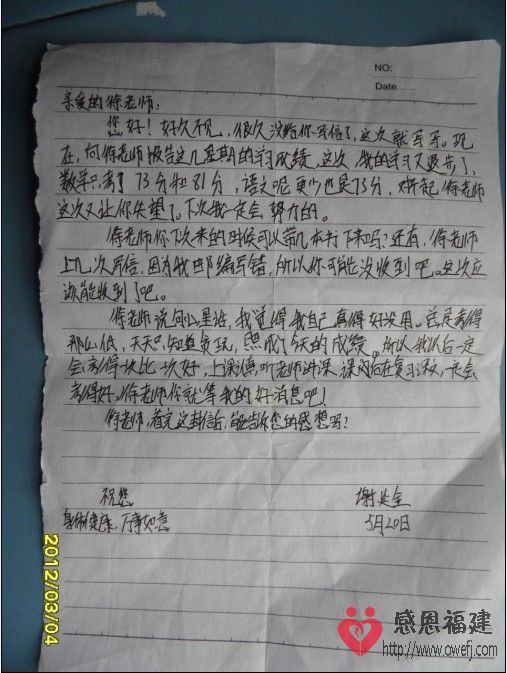 NO:
Date
亲爱的徐老师:
您好!好久不见,很久没给你写信了,这次就写牙。现
在,向徐老师报告这几星期的学习成绩,这次,我的学习又退步了,
数学只考了73分和81分,语文呢更少也是75分,对不起,徐老师
这次又让你失望了。下次我一定会努力的。
徐老师你下次来的时候可以带几本书下来吗?还有,徐老师
上几次写信,因为我邮编写错,所以你可能没收到吧。这次应
该能收到了吧。
徐老师说句心里话,我觉得我自己真得好没用。总是考得
那么低,天天只知道贪玩,造成了今天的成绩。所以我以后一定
会考得一次比一次好,上课认真听老师讲课,课间后在复习课文,一定会
考得好,徐老师你就等我的好消息吧!
徐老师,看完这封信后,能告诉您的感想吗?
祝您
谢
身体健康,万事如意
5月20日
2012/03/04
感恩福建
http://www.owefj.com